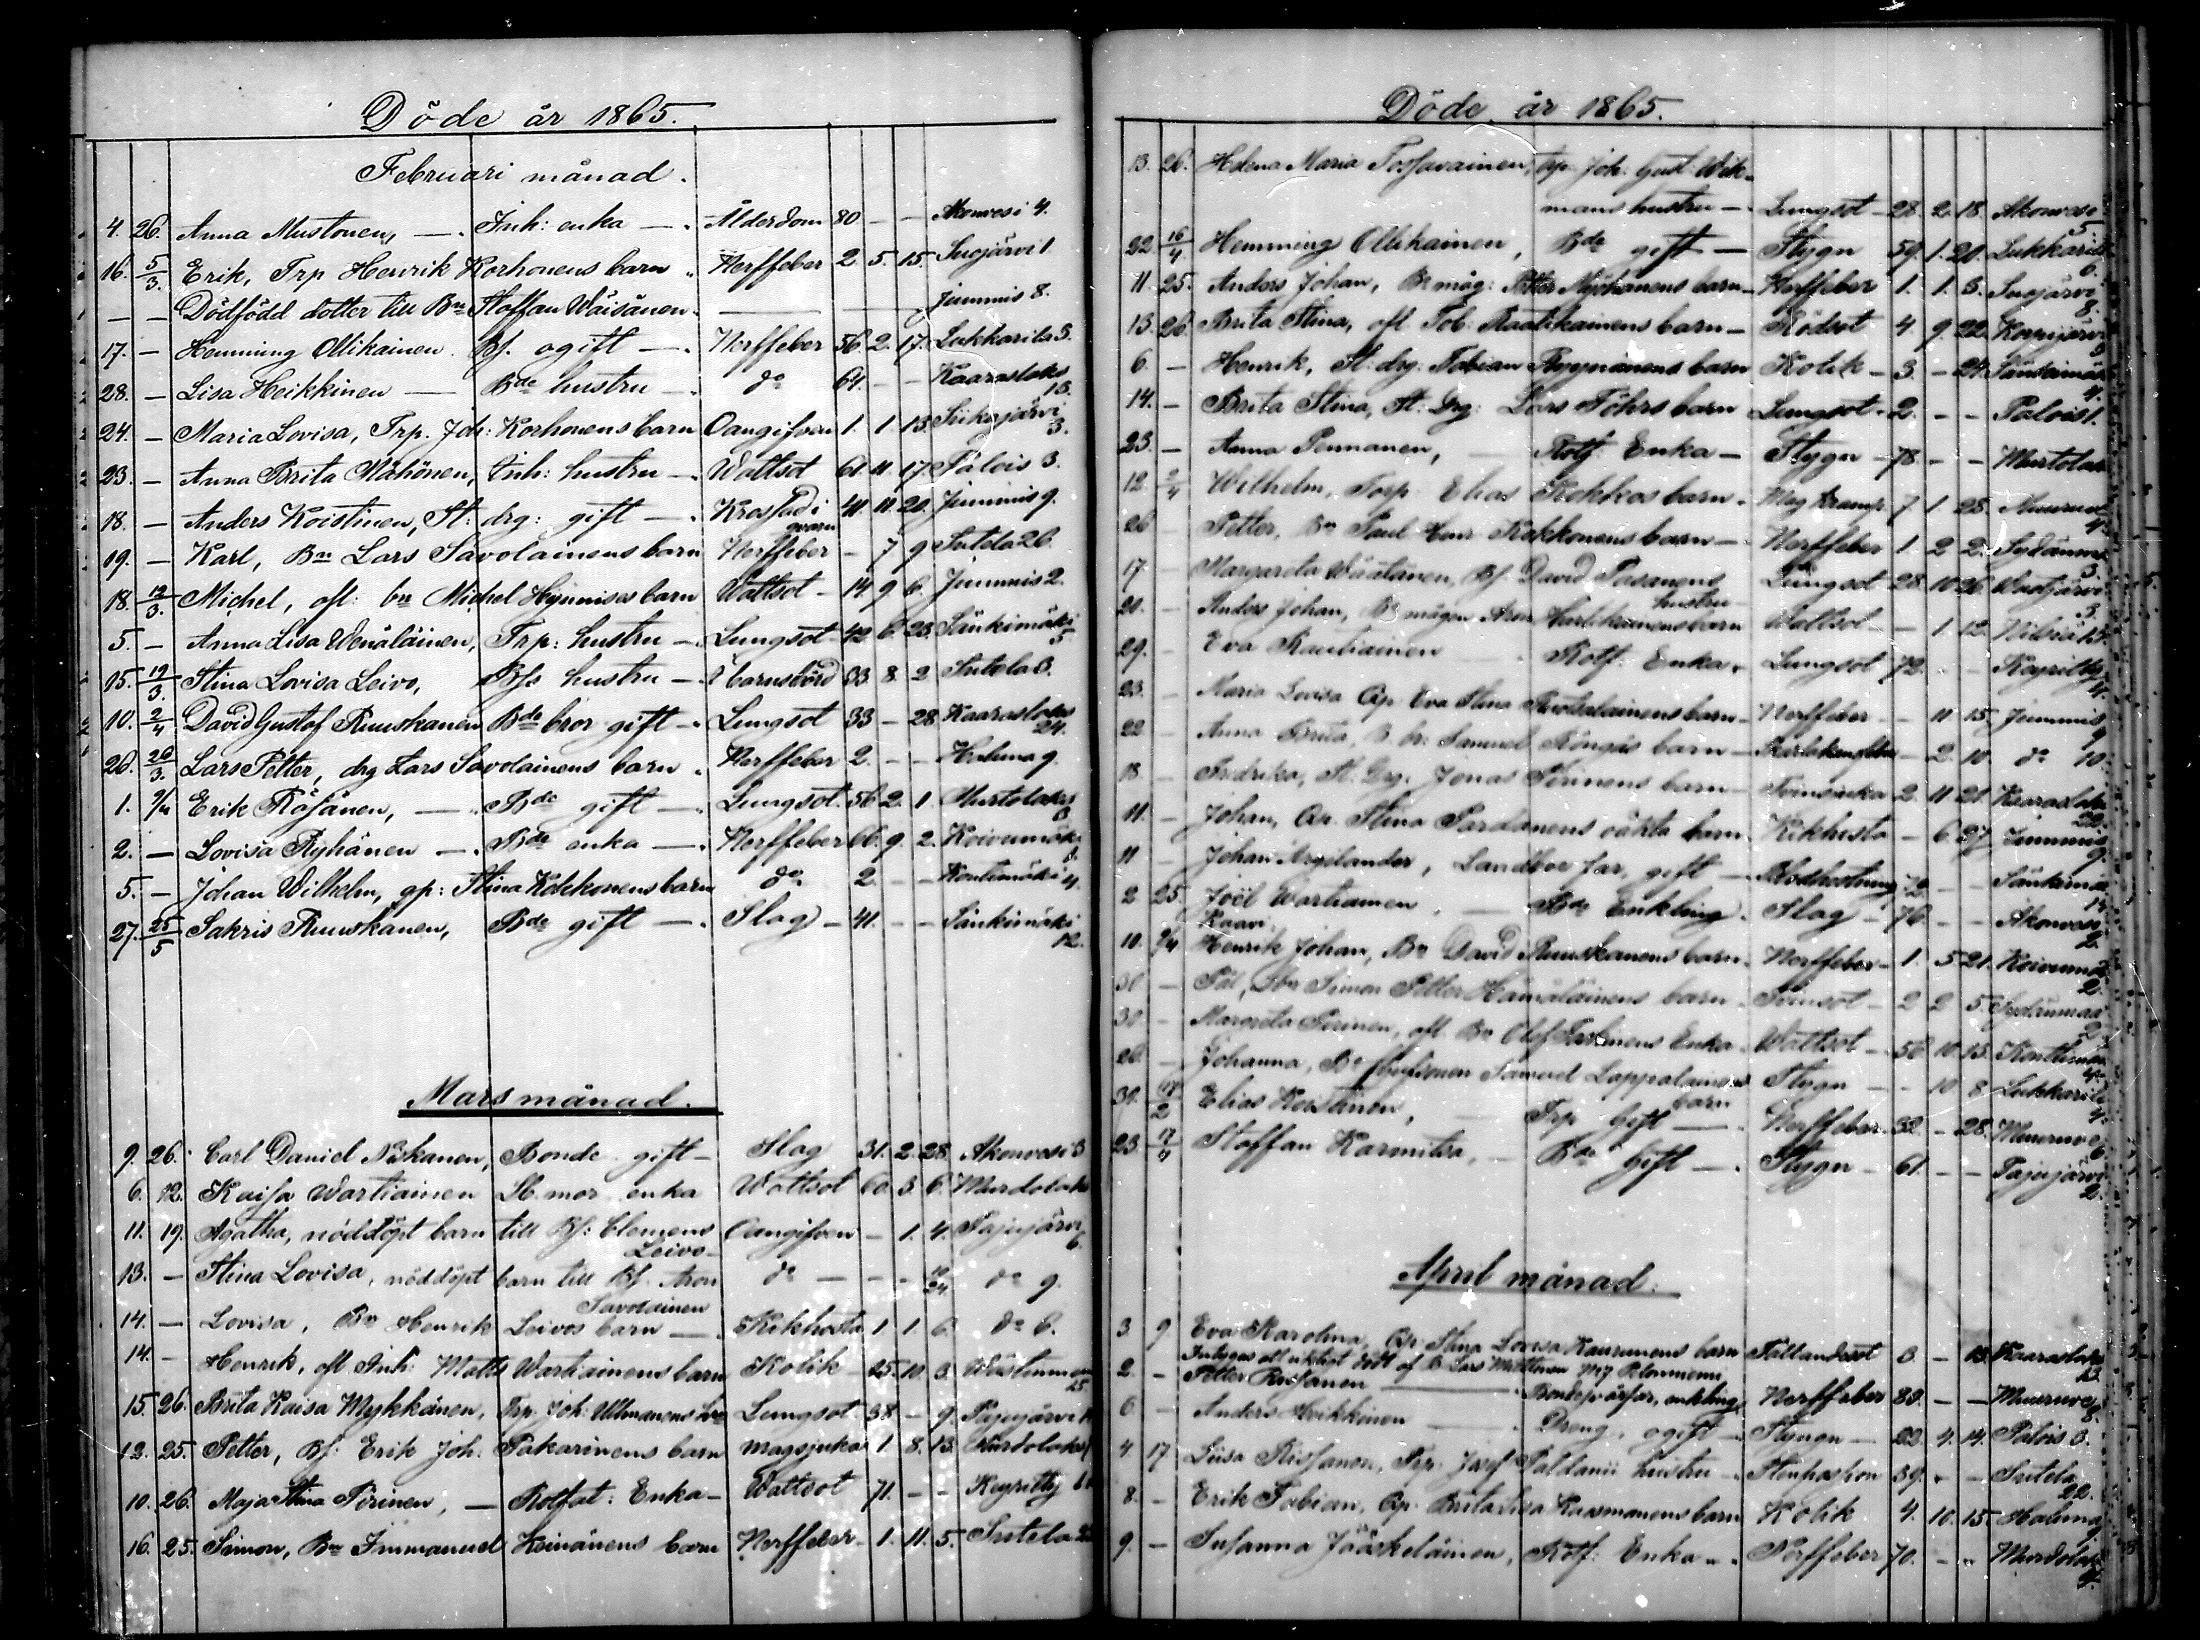 Döde år 1865.
Februari månad.
4. 26. Anna Mustonen, — Inh: enka — Ålderdom 80 — — Akonvesi 4.
16. 5/3. Erik, Trp Henrik Korhonens barn Nerffeber 2. 5. 15. Suojärvi 1.
— — Dödfödd dotter till Bn Staffan Wäisänen — Jummis 8.
17. — Henning Ollikainen Bf. ogift — Nerffeber 56. 2. 17. Lukkarila 3.
28. — Lisa Heikkinen — Bde hustru — do 64. — — Kaaraslaks 13.
24. — Maria Lovisa, Trp. Joh: Korhonens barn Oangifven 1. 1. 13. Siikajärvi 3.
23. — Anna Brita Mähönen, Inh: hustru — Wattsot 61. 11. 17. Palois 3.
18. — Anders Koistinen, St: drg: gift — Krossad i qvarn 41. 11. 20. Jummis 9.
19. — Karl, Bn Lars Savolainens barn Nerffeber — 7 9 Sutela 26.
18. 12/3. Michel, ofl: bn Michel Hynninens barn Wattsot — 14 9 6. Jummis 2.
5. — Anna Lisa Wenäläinen, Trp: hustru — Lungsot 42 6. 23. Sänkimäki 5
15. 19/3. Stina Lovisa Leivo, Bfs hustru — Barnsbörd 33 8. 2 Sutela 3.
10. 2/4 David Gustaf Ruuskanen Bde bror gift — Lungsot 33 — 28. Kaaraslaks 24.
26. 26/3. Lars Petter, drg Lars Savolainens barn Nerffeber 2. — — Haluna 9.
1. 9/4 Erik Räsänen, — Bde gift — Lungsot. 56 2. 1. Murtolaks 8
2. — Lovisa Ryhänen — Bde enka — Nerffeber 66. 9. 2. Koivumäki 8.
5. — Johan Wilhelm, qp: Stina Kokkonens barn do 2. — — Kontimäki 4.
27. 25/5 Sakris Ruuskanen, Bde gift — Slag — 41. — — Sänkimäki 12.
Mars månad.
9. 26. Carl Daniel Niskanen, Bonde gift — Slag 31. 2. 28. Akonvesi 3
6. 12. Kaisa Wartiainen Sb. mor enka Wattsot 60. 3 6. Murdolaks
11. 19. Agatha, nöddöpt barn till Bf: Clemens Leivo — Oangifven — 1. 4. Pajujärvi 6.
13. — Stina Lovisa, nöddöpt barn till Bf. Aron Savolainen do — — — 10/24 do 9.
14. — Lovisa, Bn Henrik Leivos barn — Kikhosta 1. 1. 6. do 6.
14. — Henrik, ofl Inh: Matts Wartiainens barn Kolik — 25. 10. 3. 25.
15. 26. Brita Kaisa Mykkänen, Trp. Joh: Ullmanens Lungsot 38 — 9. Pajujärvi
12. 25. Petter, Bf: Erik Joh. Pakarinens barn Magsjuka 1. 8. 13. Murdolaks
10. 26. Maja Stina Pirinen, — Rotfat: Enka — Wattsot 71. — — Keyritty
16. 25. Simon, Bn Immanuel Keinänens barn Nerffeber — 1. 11. 5. Sutela
Döde år 1865.
13. 26. Helena Maria Tossavainen, Trp. Joh: Gust: Wik-
mans hustru — Lungsot — 28. 2. 18. Akonvesi 5.
22 16/4 Hemming Ollikainen, Bde gift — Stygn 59. 1. 20. Lukkarila 6.
11. 25. Anders Johan, Bn måg: Petter barn — Nerffeber 1. 1. 3. Suojärvi 8.
13. 26. Brita Stina, ofl Tob: Raatikainens barn — Rödsot 4 9 22
6. — Henrik, St. drg: Tobian barn Kolik — 3. — 24. Sänkimäki 4.
14. — Brita Stina, St. Drg: Lars Föhrs barn Lungsot — 2. — — Palois 1.
23. — Anna Pennanen, — Rotf Enka — Stygn — 78. — — Murtolaks
12. 2/4 Wilhelm, Torp: Elias Kokkos barn — Mag kramp 7 1 28. Muuruvesi 4.
26 Petter, Bn Paul Henr Kokkonens barn — Nerffeber 1. 2 2. Sydänmaa 3.
17. — Margareta Väätänen, Bf: David Pasanens hustru Lungsot 28 10 26. 3.
20. — Anders Johan, Bn mågen Aron barn Wattsot — 1. 12. Nilsiä 13
29. — Eva Rautiainen Rotf. Enka, Lungsot 72. — Keyritty 4.
23. — Maria Lovisa Qp. Eva Stina barn — Nerffeber — 11 15 Jummis 9
22 — Anna Brita, B. br: Samuel Röngäs barn — — 2. 10. do 10.
18. — Fredrika, St. Drg. Jonas Pirinens barn — Tvinsiuka 2. 11 21. Kaaraslaks 22.
11. — Johan, Qp. Stina Pardanens oäkta barn — Kikhosta — 6 27. Jummis 9.
11 — Johan Argilander, Landbor far, gift — Blodhostning 72 — — Sänkimäki 13.
2 25. Joël Wartiainen, — Bde Enkling — Slag — 76. — — Akonvesi 2.
Kaavi.
10. 9/4 Henrik Johan, Bn David Ruuskanens barn — Nerffeber — 1. 5 21. Koivumäki 2.
30. — Pål, Lbn Simon Petter Hämäläinens barn — Tvinsot — 2 2 5. Sydänmaa 2
30. — Margreta Pirinen, ofl. Bn Olof enka — Wattsot — 56. 10. 15. Kontimäki 4.
26. — Johanna, Bn Samuel Lappalainens barn Stygn — — 10 8 Lukkarila 4.
30. Elias Koistinen, — Trp Gift — Nerffeber 32. — 28. Muuruvesi 6.
23. 17/4 Staffan Karmitsa, — Bde Gift — Stygn — 61. — — Pajujärvi 2.
April månad.
3 9 Eva Karolina, Qp: Stina Lovisa barn Fallandesot 3. — 13. Kaaraslaks 13.
2. — Petter Räsänen — Bondesvärfar, enkling, Nerffeber 83. — — Muuruvesi 8.
6 — Anders Heikkinen — Dreng, ogift — Stygn — 22. 4. 14. Palois 3.
4 17 Liisa Rissanen, Trp. Josef Paldanii hustru — 39. — — Sutela 22.
8. — Erik Fabian, Qp. Brita Lisa Rasmanens barn Kolik 4. 10. 15. Haluna 9
9. — Susanna Jääskeläinen, Rotf: Enka — Nerffeber 70. — — Murdolaks 4.